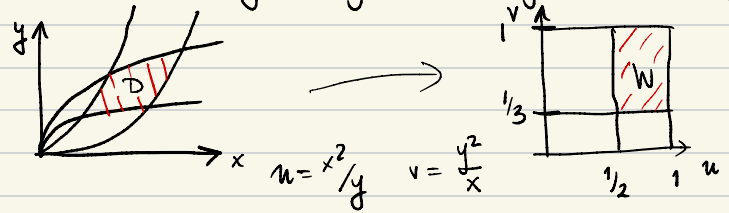 y
D
x
u = x²/y v = y²/x
v
1
W
1/3
1/2 1 u